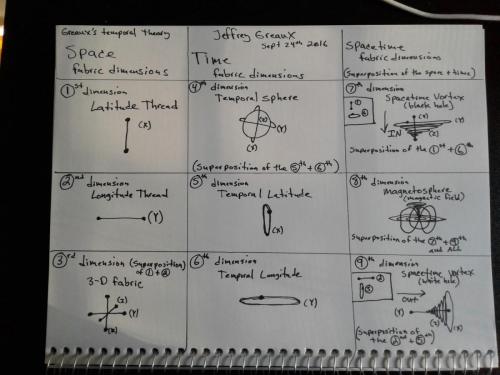 Greaux's temporal theory
Space
fabric dimensions
Jeffrey Greaux
Sept 24th 2016
Time
fabric dimensions
Spacetime
fabric dimensions
(Superposition of the space + time)
1st dimension
Latitude Thread
(X)
4th dimension
Temporal Sphere
(X)
(Y)
(X)
(Superposition of the 5th + 6th)
7th dimension
Spacetime Vortex
(black hole)
1
6
IN
(Y)
(Z)
(X)
Superposition of the 1st + 6th
2nd dimension
Longitude Thread
(Y)
5th dimension
Temporal Latitude
(X)
8th dimension
magnetosphere
(magnetic field)
Superposition of the 7th + 9th
and ALL
3rd dimension (Superposition)
of 1 + 2
3-D fabric
(Z)
(Y)
(X)
6th dimension
Temporal Longitude
(Y)
9th dimension
Spacetime Vortex
(white hole)
2
5
OUT
(Y)
(Z)
(X)
(Superposition of
the 2nd + 5th)